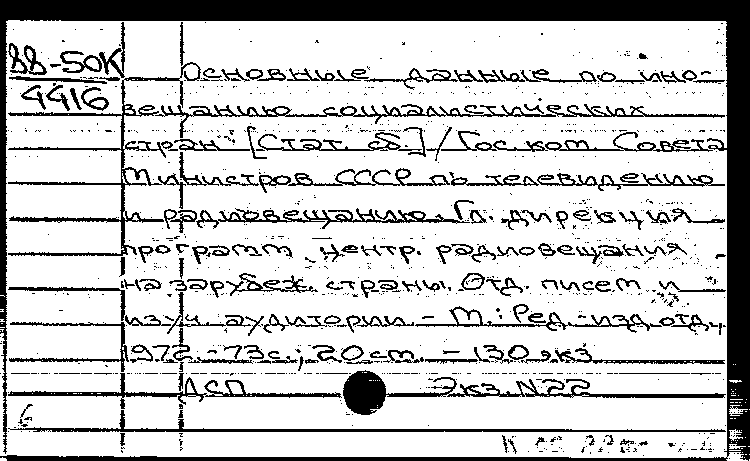 88-50К
4416
Основные данные по ино-
вещанию социалистических
стран [Стат. сб.] / Гос. ком. Совета
Министров СССР по телевидению
и радиовещанию. Гл. дирекция
программ центр. радиовещания
на зарубеж. страны. Отд. писем и
изуч. аудитории. - М.: Ред.-изд. отд.,
1972. - 73с.; 20 см. - 130 экз
ДСП Экз. N22
6